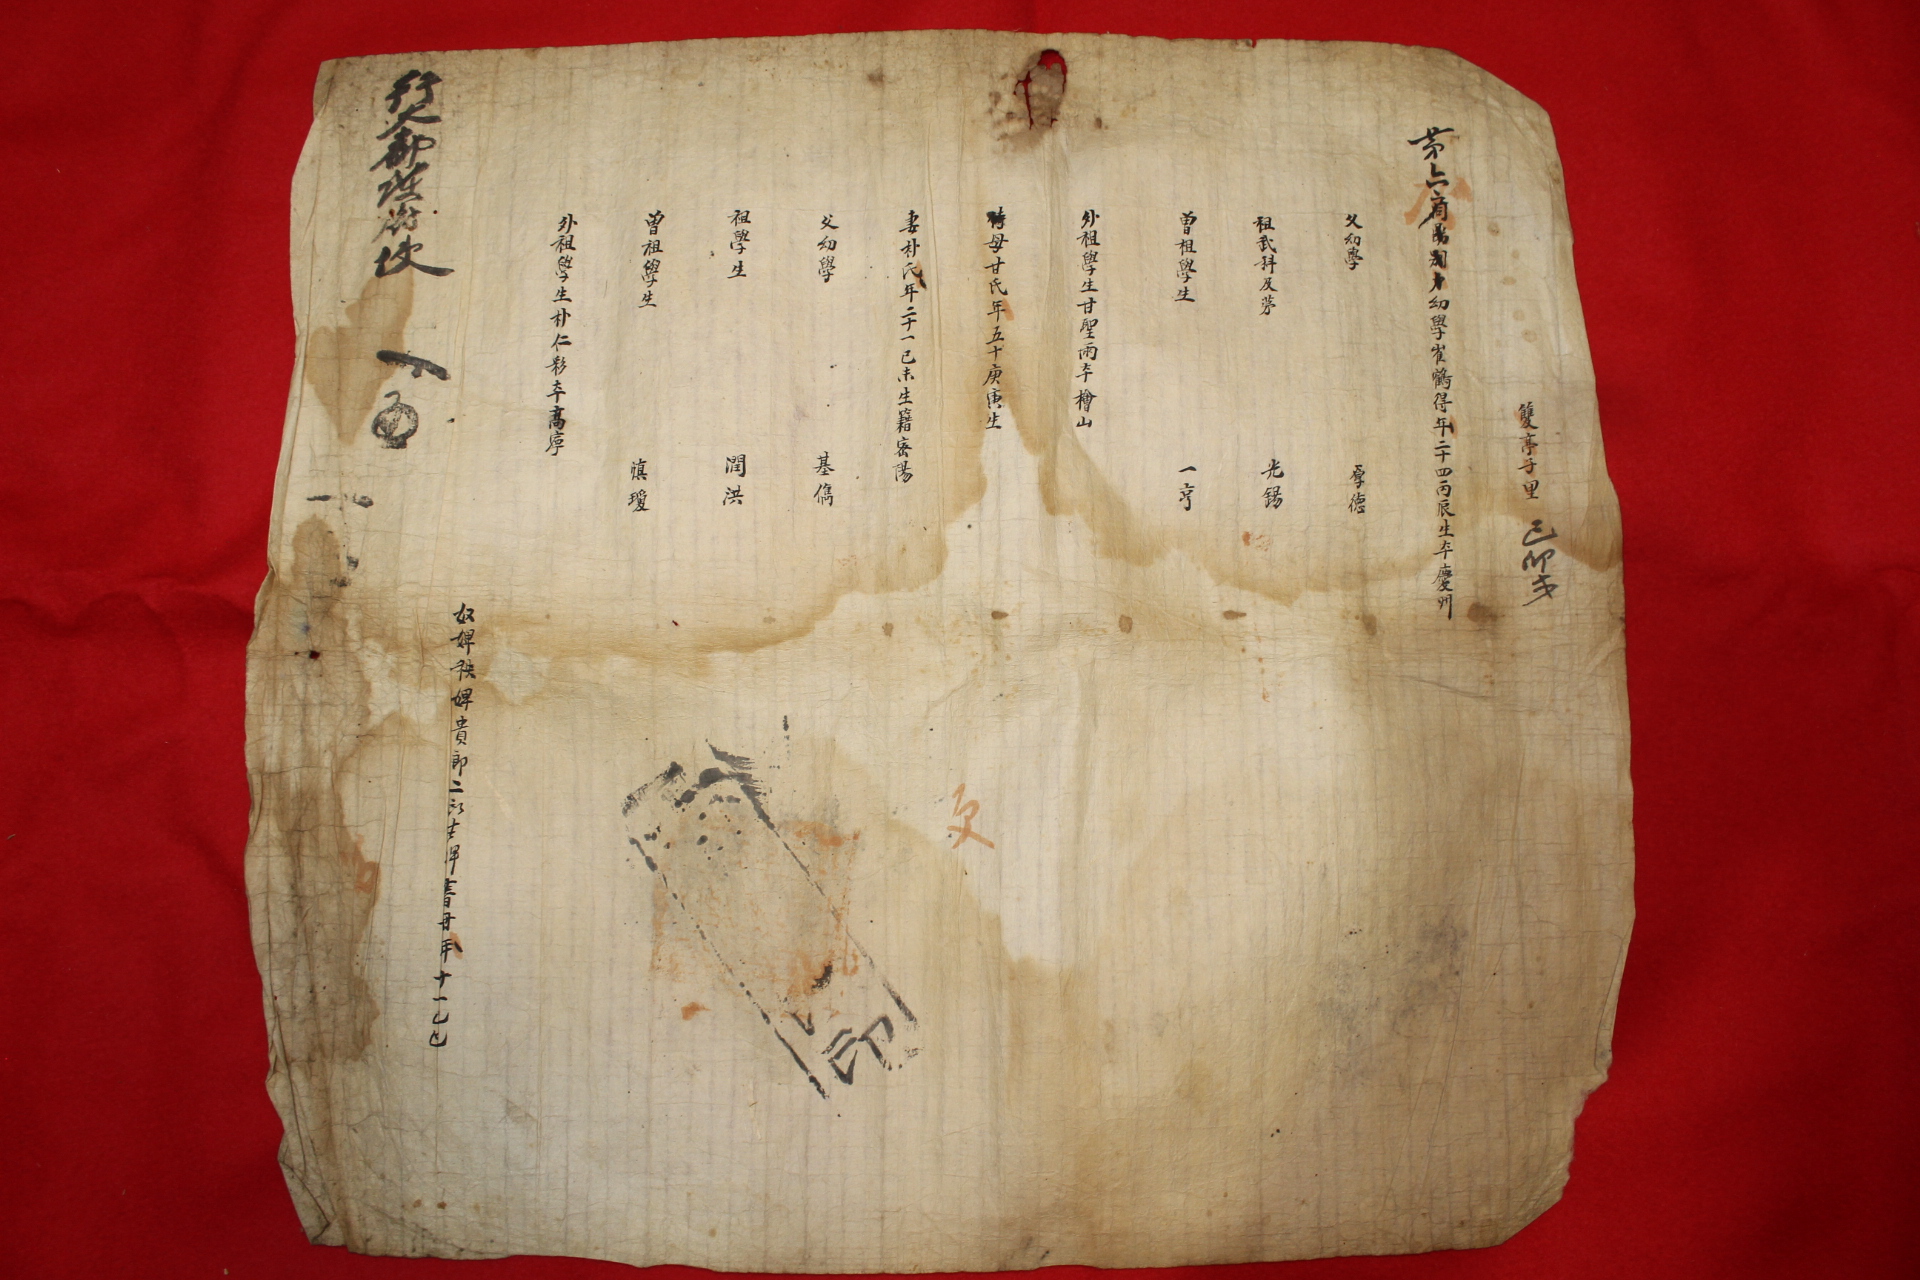 雙亭子里 己卯式
第六 幼學崔鶴得年二十四丙辰生本慶州
父幼學 厚德
祖武科及第 光錫
曾祖學生 一亨
外祖學生甘聖雨本檜山
母甘氏年五十庚寅生
妻朴氏年二十一己未生籍密陽
父幼學 基儁
祖學生 潤洪
曾祖學生 瓊
外祖學生朴仁彩本高
奴婢秩婢貴郎二 年十一乙巳
行大都護府使
印